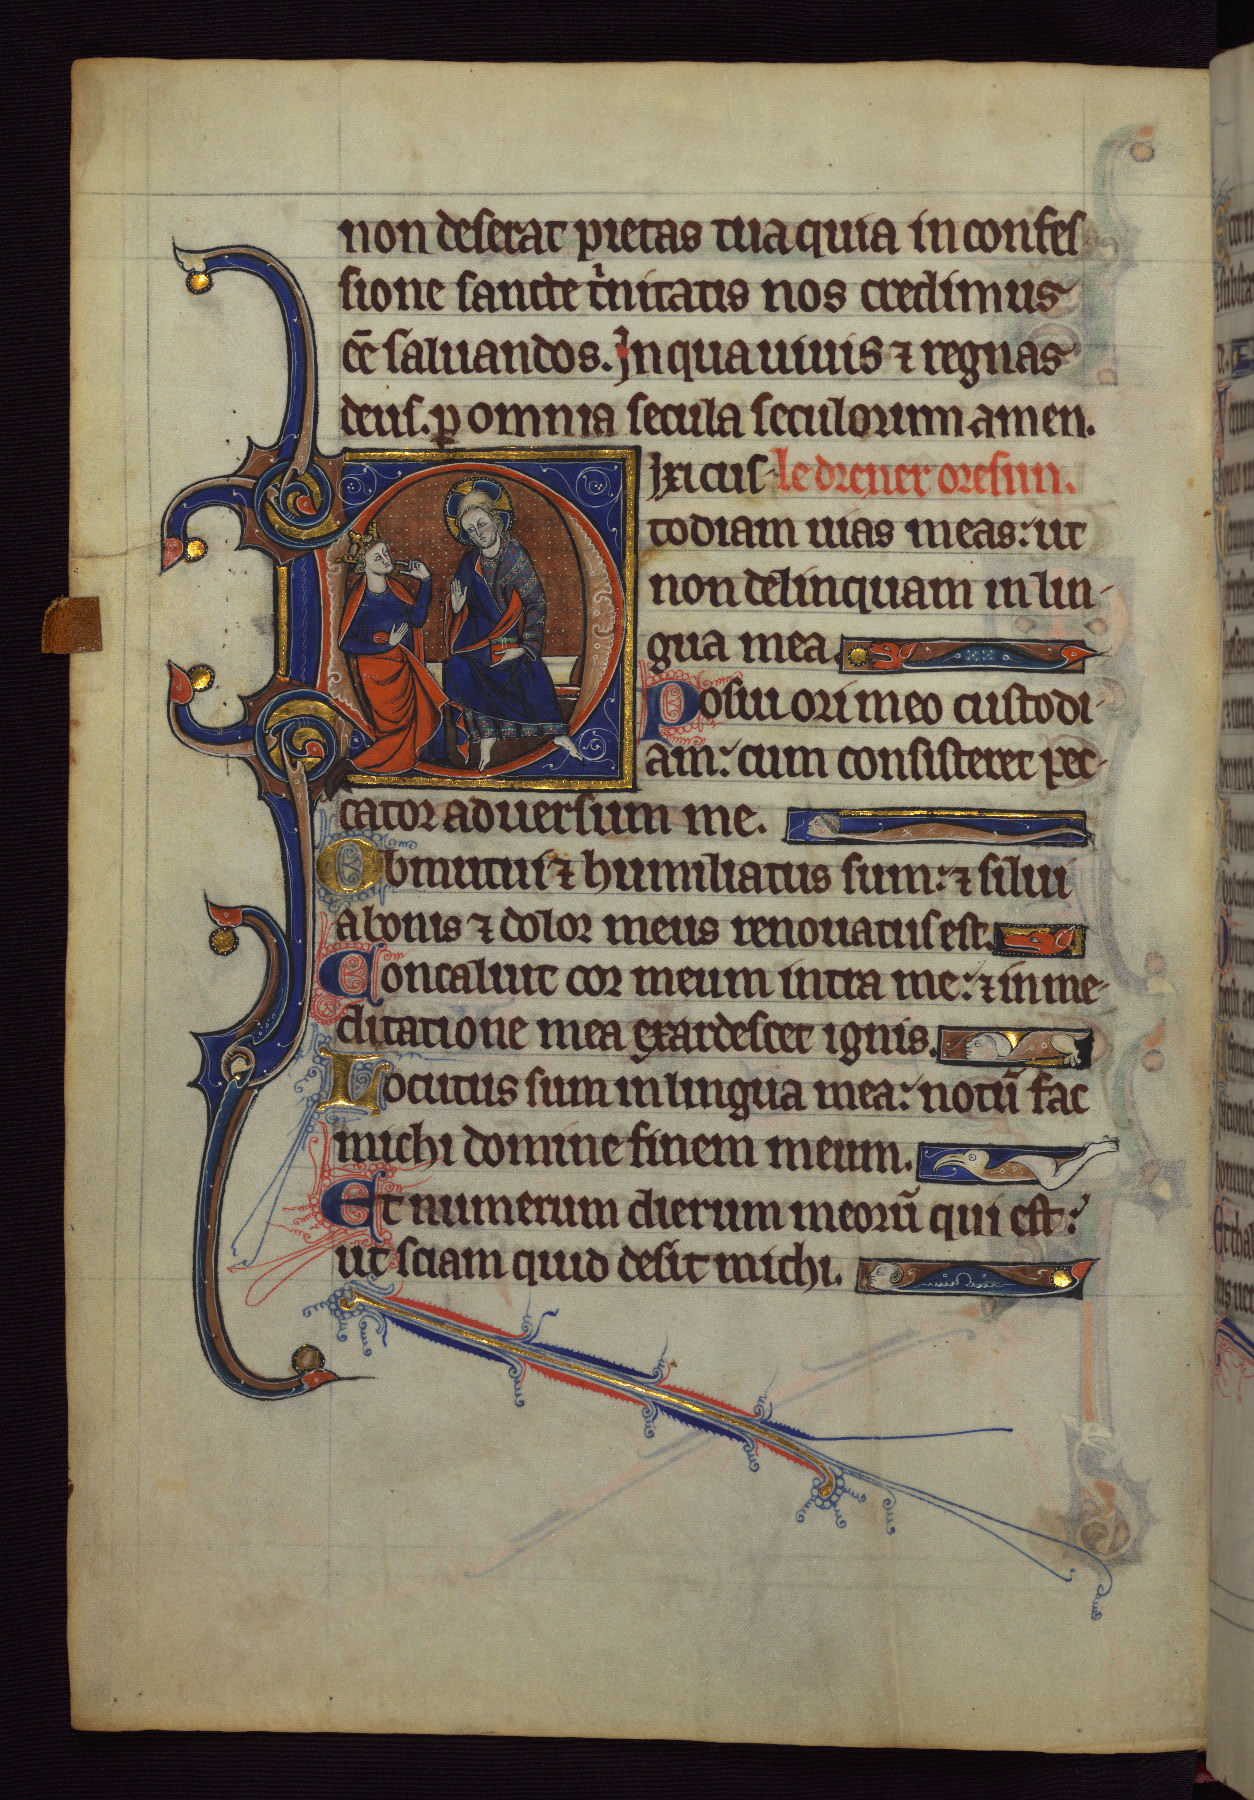 non deserat pietas tua quia in confes
sione sancte t'nitatis nos credimus
ee̅ saluandos. In qua uiuis ⁊ regnas
deus. p̲ omnia secula seculorum amen.
Dixi cus-
todiam uias meas: ut
non delinquam in lin-
gua mea.
Posui ori meo custodi-
am: cum consisteret pec-
cator aduersum me.
Obmutui ⁊ humiliatus sum: ⁊ silui
a bonis ⁊ dolor meus renouatus est.
Concaluit cor meum intra me: ⁊ in me-
ditatione mea exardescet ignis.
Locutus sum in lingua mea: notu̅ fac
michi domine finem meum.
Et numerum dierum meoru̅ qui est:
ut sciam quid desit michi.